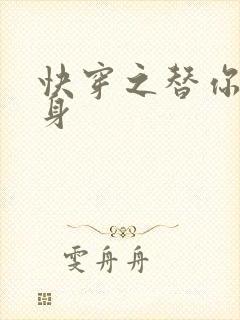 快穿之替你
身
雯舟舟